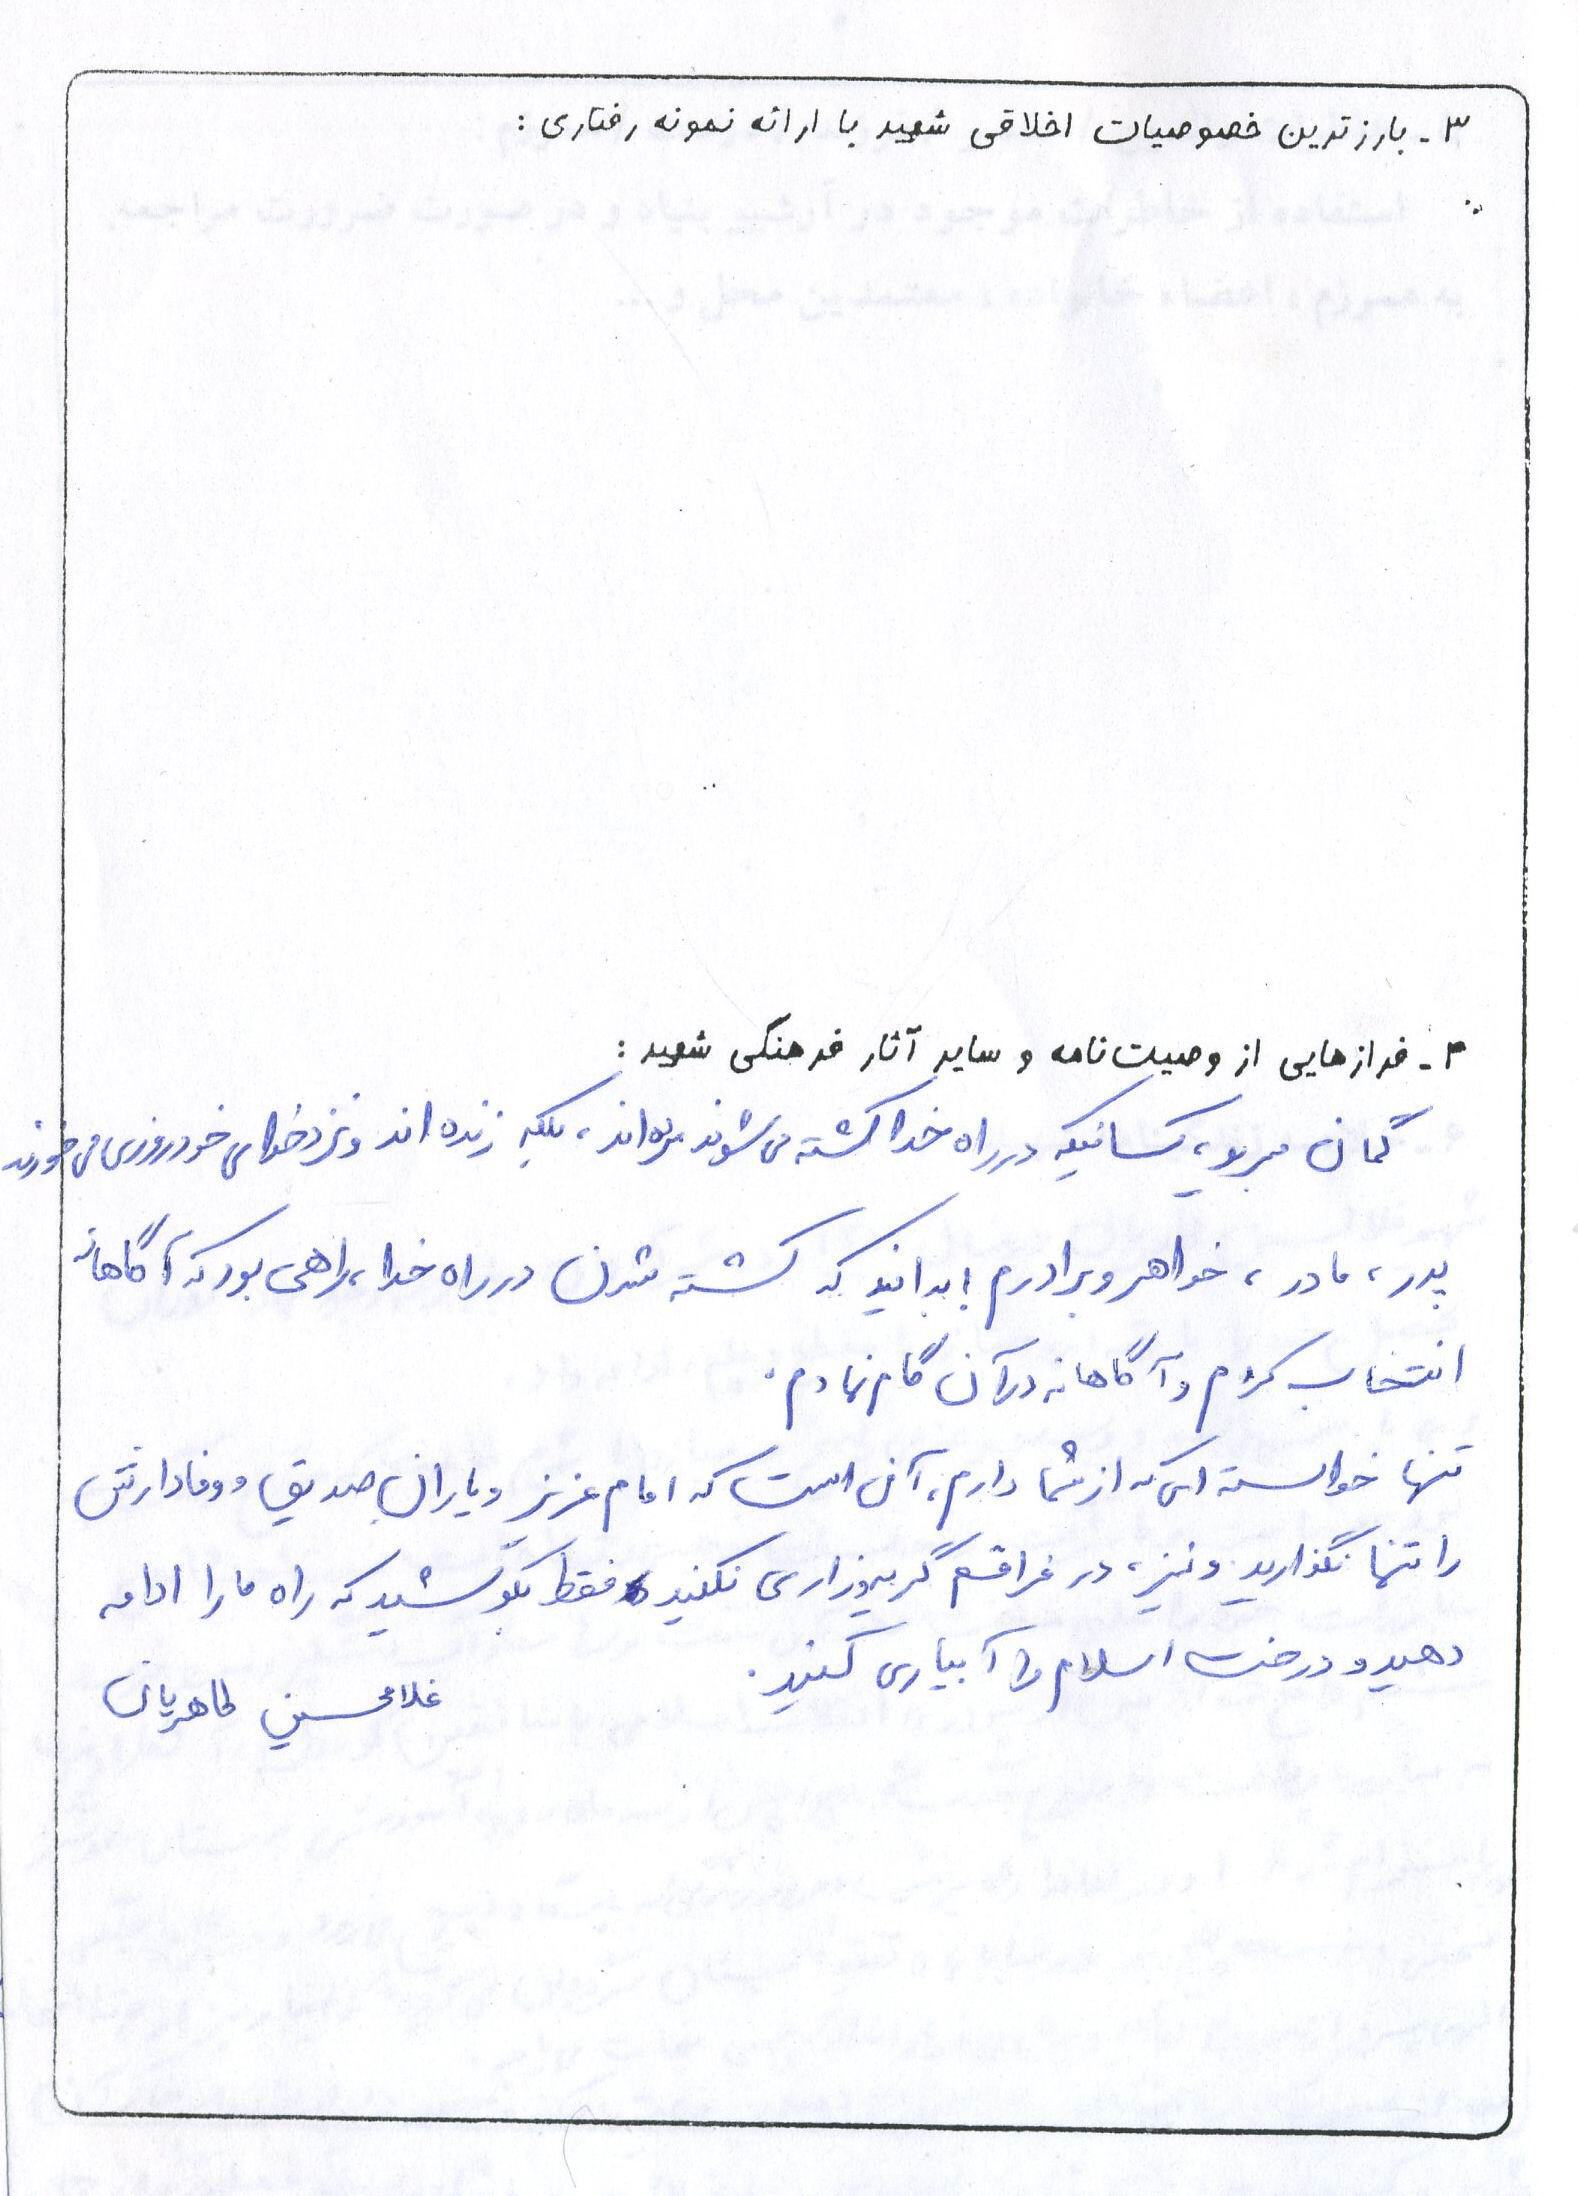 ۳ـ بارزترین خصوصیات اخلاقی شهید با ارائه نمونه رفتاری :
۴ـ فرازهایی از وصیت‌نامه و سایر آثار فرهنگی شهید :
گمان مبرید، کسانیکه در راه خدا کشته می‌شوند مرده‌اند، بلکه زنده اند و نزد خدای خود روزی می‌خورند
پدر، مادر، خواهر و برادرم! بدانید که کشته شدن در راه خدا، راهی بود که آگاهانه
انتخاب کردم و آگاهانه در آن گام نهادم.
تنها خواسته ای که از شما دارم، آن است که امام عزیز و یاران صدیق و وفادارش
را تنها نگذارید و نیز، در فراقم گریه و زاری نکنید فقط بکوشید که راه ما را ادامه
دهید و درخت اسلام را آبیاری کنید.
غلامحسین طاهریان